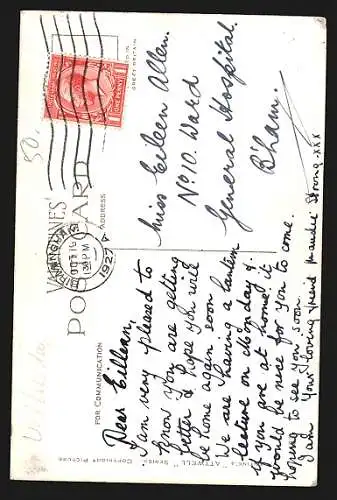 VALENTINES'
POST CARD
FOR COMMUNICATION
ADDRESS
GREAT BRITAIN
BIRMINGHAM
OCT 16
PM
1927
ONE PENNY
50.-
Miss Eileen Allen.
No 10. Ward
General Hospital
B'ham.
Dear Eillean,
I am very pleased to
know you are getting
better & hope you will
be home again soon
We are having a lantern
lecture on Monday &
if you are at home it
would be nice for you to come.
Hoping to see you soon.
I am Your loving friend Maudie Strong. xxx
"ATTWELL" SERIES
COPYRIGHT PICTURE